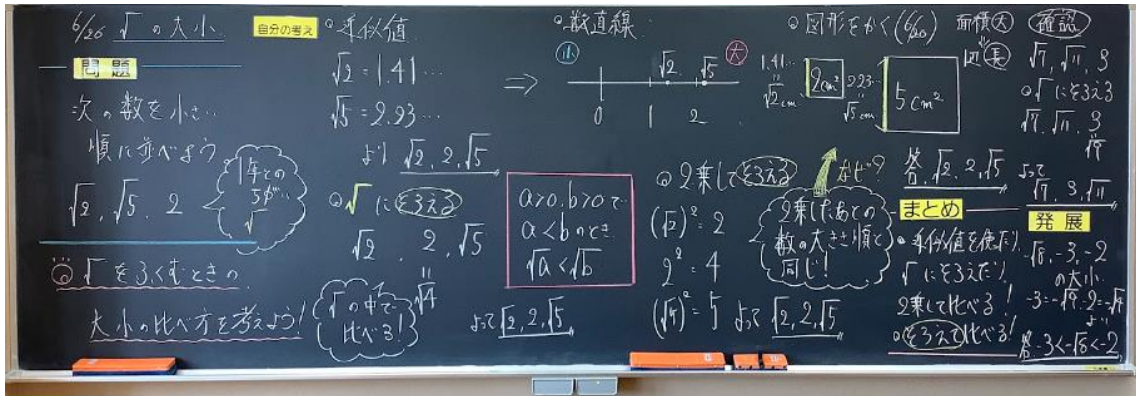 6/26 √の大小
問題
次の数を小さい
順に並べよう。
√2, √5, 2
1年との
ちがい
√
√をふくむときの
大小の比べ方を考えよう！
自分の考え
◎近似値
√2 = 1.41…
√5 = 2.23…
より √2, 2, √5
◎√にそろえる
√2, 2, √5
=
√4
√の中で
比べる！
よって √2, 2, √5
◎数直線
⇒
小
大
√2 √5
0 1 2
a>0, b>0で
a<bのとき
√a<√b
◎2乗してそろえる
(√2)² = 2
2² = 4
(√5)² = 5 よって √2, 2, √5
なぜ？
2乗したあとの
数の大きさ順と
同じ！
◎図形をかく(6/26)
面積大
↓
辺長
1.41…
=
√2 cm
2cm²
2.23…
=
√5 cm
5cm²
答, √2, 2, √5
まとめ
◎近似値を使だり
√にそろえたり
2乗して比べる！
◎そろえて比べる！
確認
√7, √11, 3
◎√にそろえる
√7, √11, 3
=
√9
よって
√7, 3, √11
発展
-√8, -3, -2
の大小
-3=-√9, -2=-√4
より
答 -3<-√8<-2